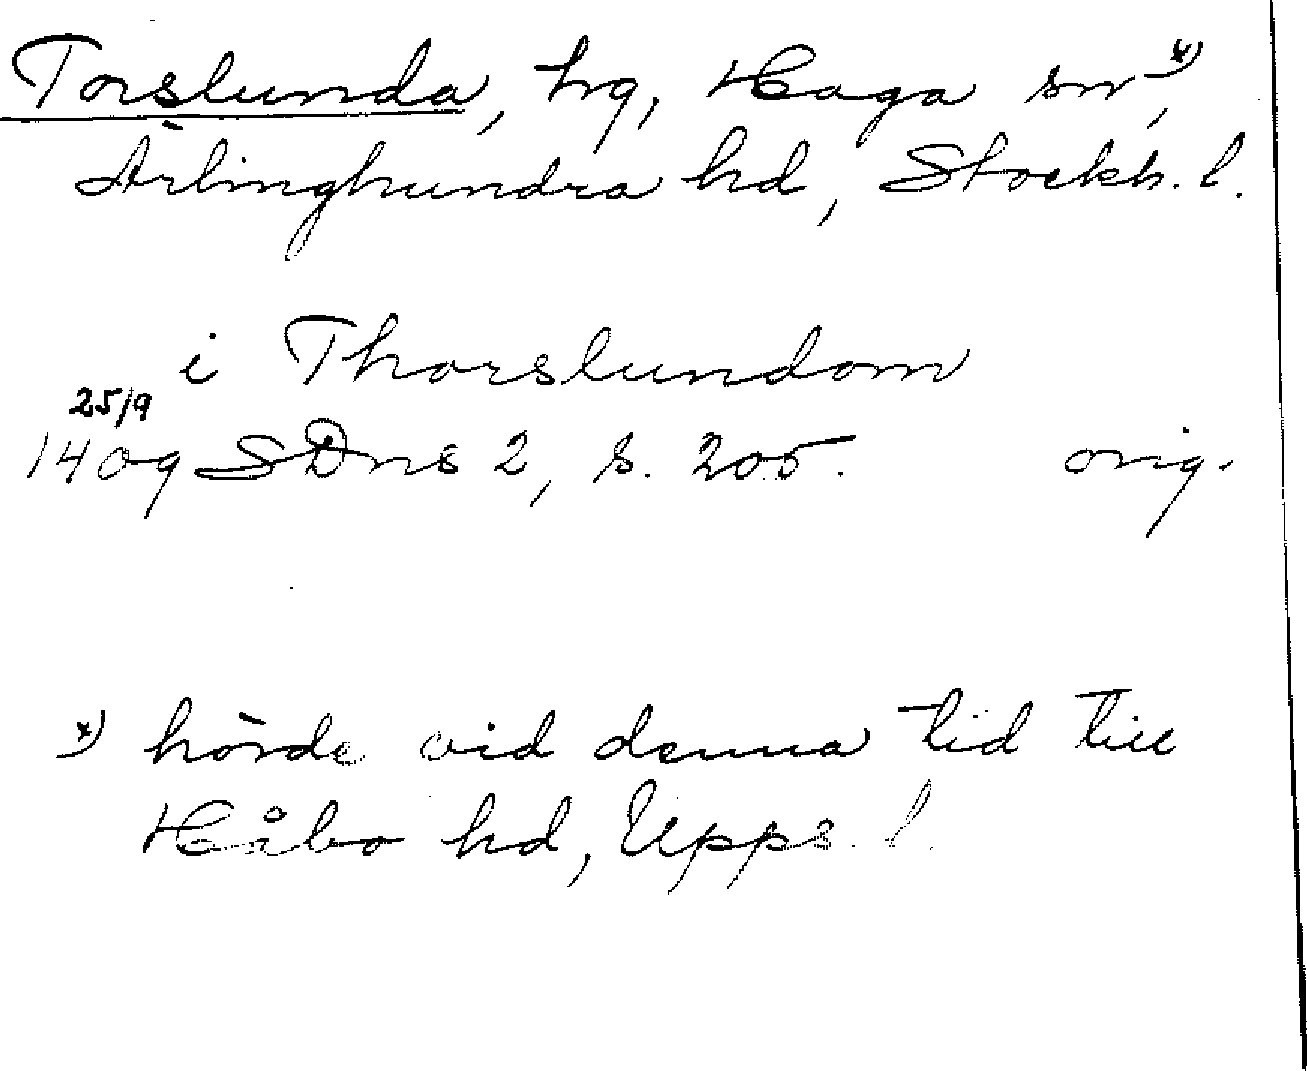 Torslunda, hg, Haga sn *),
Ärlinghundra hd, Stockh. l.
i Thorslundom
25/9
1409 SDns 2, s. 205. orig.
*) hörde vid denna tid till
Håbo hd, Upps. l.